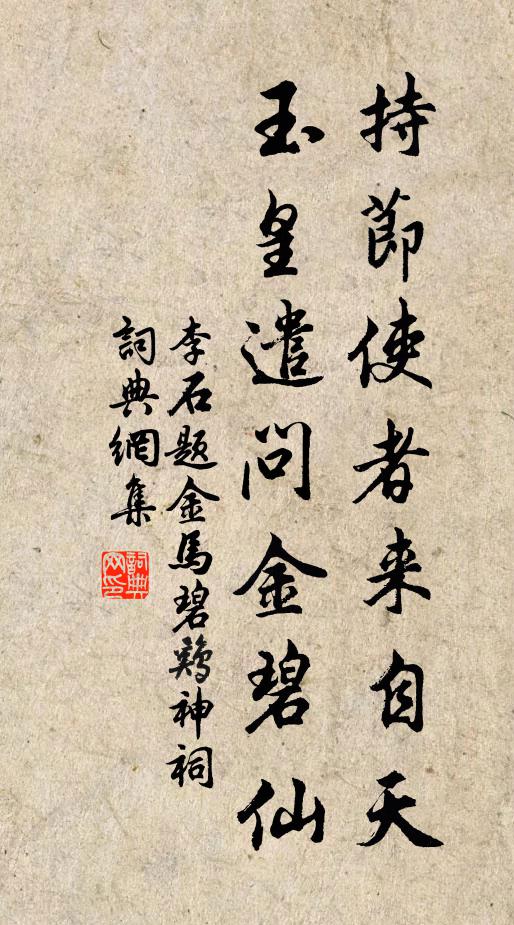 持節使者来自天
玉皇遣问金碧仙
李石题金馬碧鷄神祠
詞典網集
詞典網印